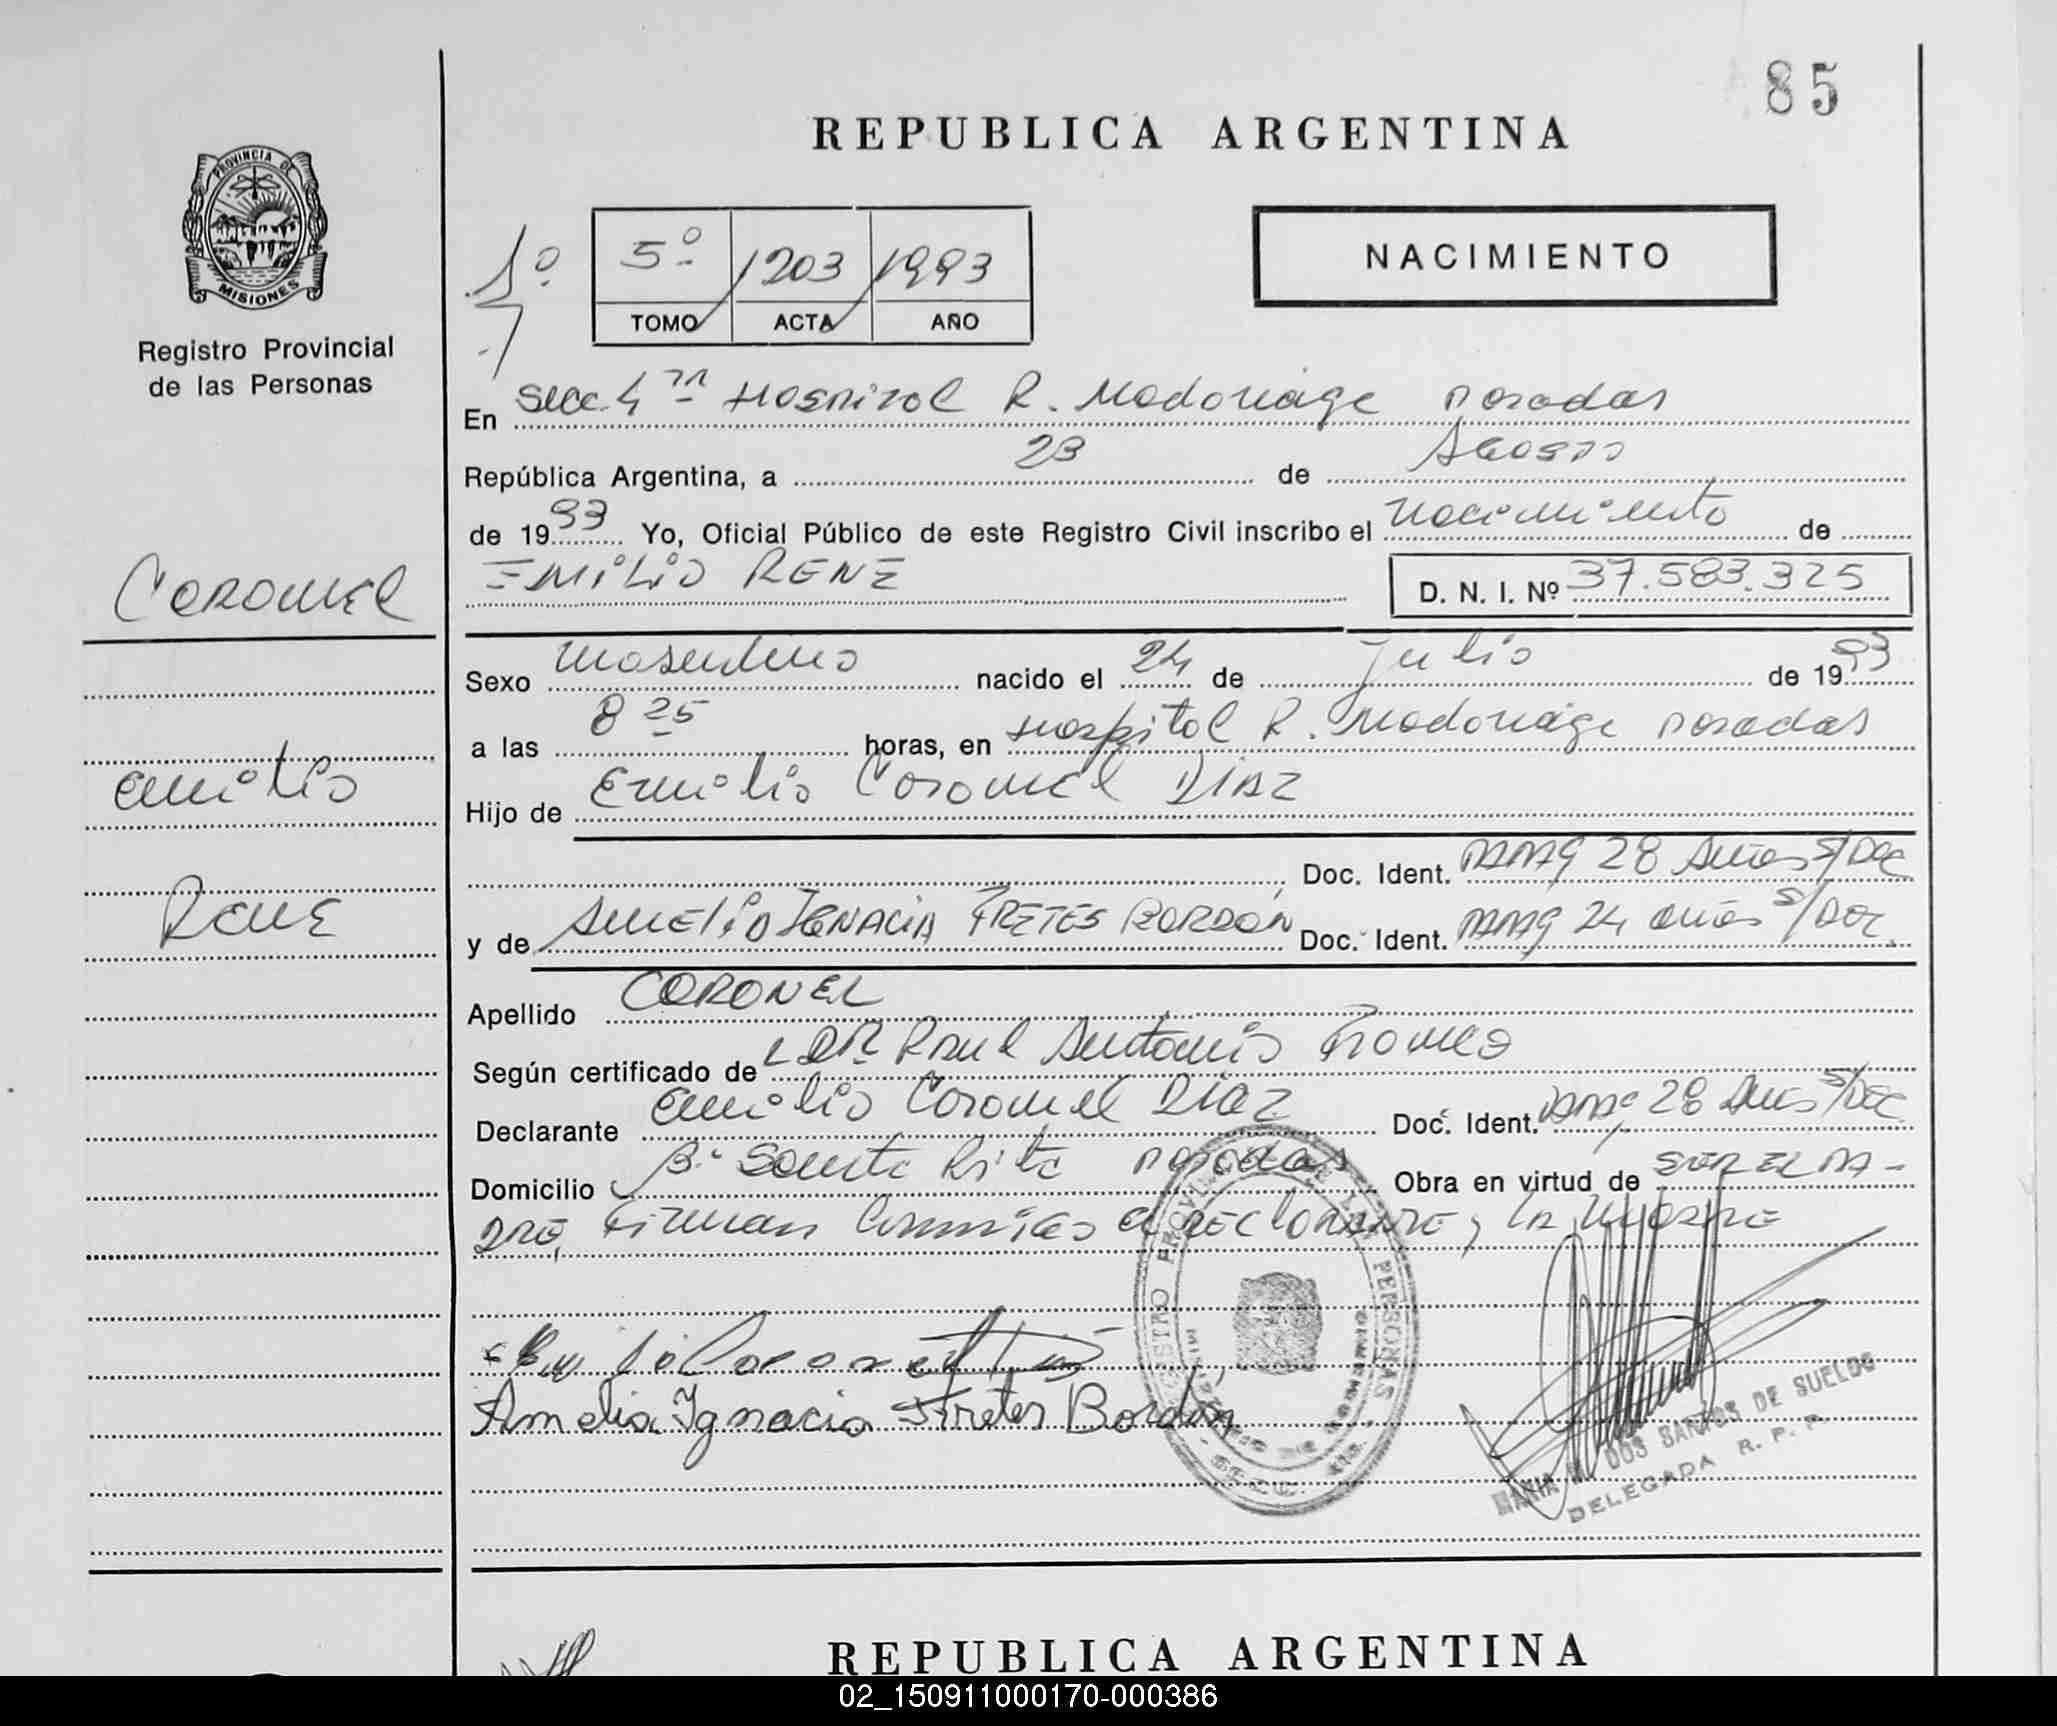 85
REPUBLICA ARGENTINA
PROVINCIA DE
MISIONES
Registro Provincial
de las Personas
NACIMIENTO
5º 1203 1993
TOMO ACTA AÑO
En Secc. 4ta Hospital R. Madariaga Posadas
República Argentina, a 23 de Agosto
de 1993 Yo, Oficial Público de este Registro Civil inscribo el nacimiento de
EMILIO RENE D. N. I. Nº 37.583.325
CORONEL
Emilio
RENE
Sexo masculino nacido el 24 de Julio de 1993
a las 8 25 horas, en Hospital R. Madariaga Posadas
Hijo de Emilio Coronel DIAZ
Doc. Ident. PARAG 28 Años S/Doc
y de AMELIA IGNACIA FRETES BORDON Doc. Ident. PARAG 24 años S/Doc.
Apellido CORONEL
Según certificado de DR Raul Antonio
Declarante Emilio Coronel Diaz Doc. Ident. PARAG 28 Años S/Doc
Domicilio Bº Santa Rita Posadas Obra en virtud de SER EL PA-
DRE, Firman Conmigo el DECLARANTE y LA MADRE
Emilio Coronel
Amelia Ignacia Fretes Bordón
REGISTRO PROVINCIAL DE LAS PERSONAS
MARIA DOS SANTOS DE SUELDO
DELEGADA R. P. P.
REPUBLICA ARGENTINA
02_150911000170-000386